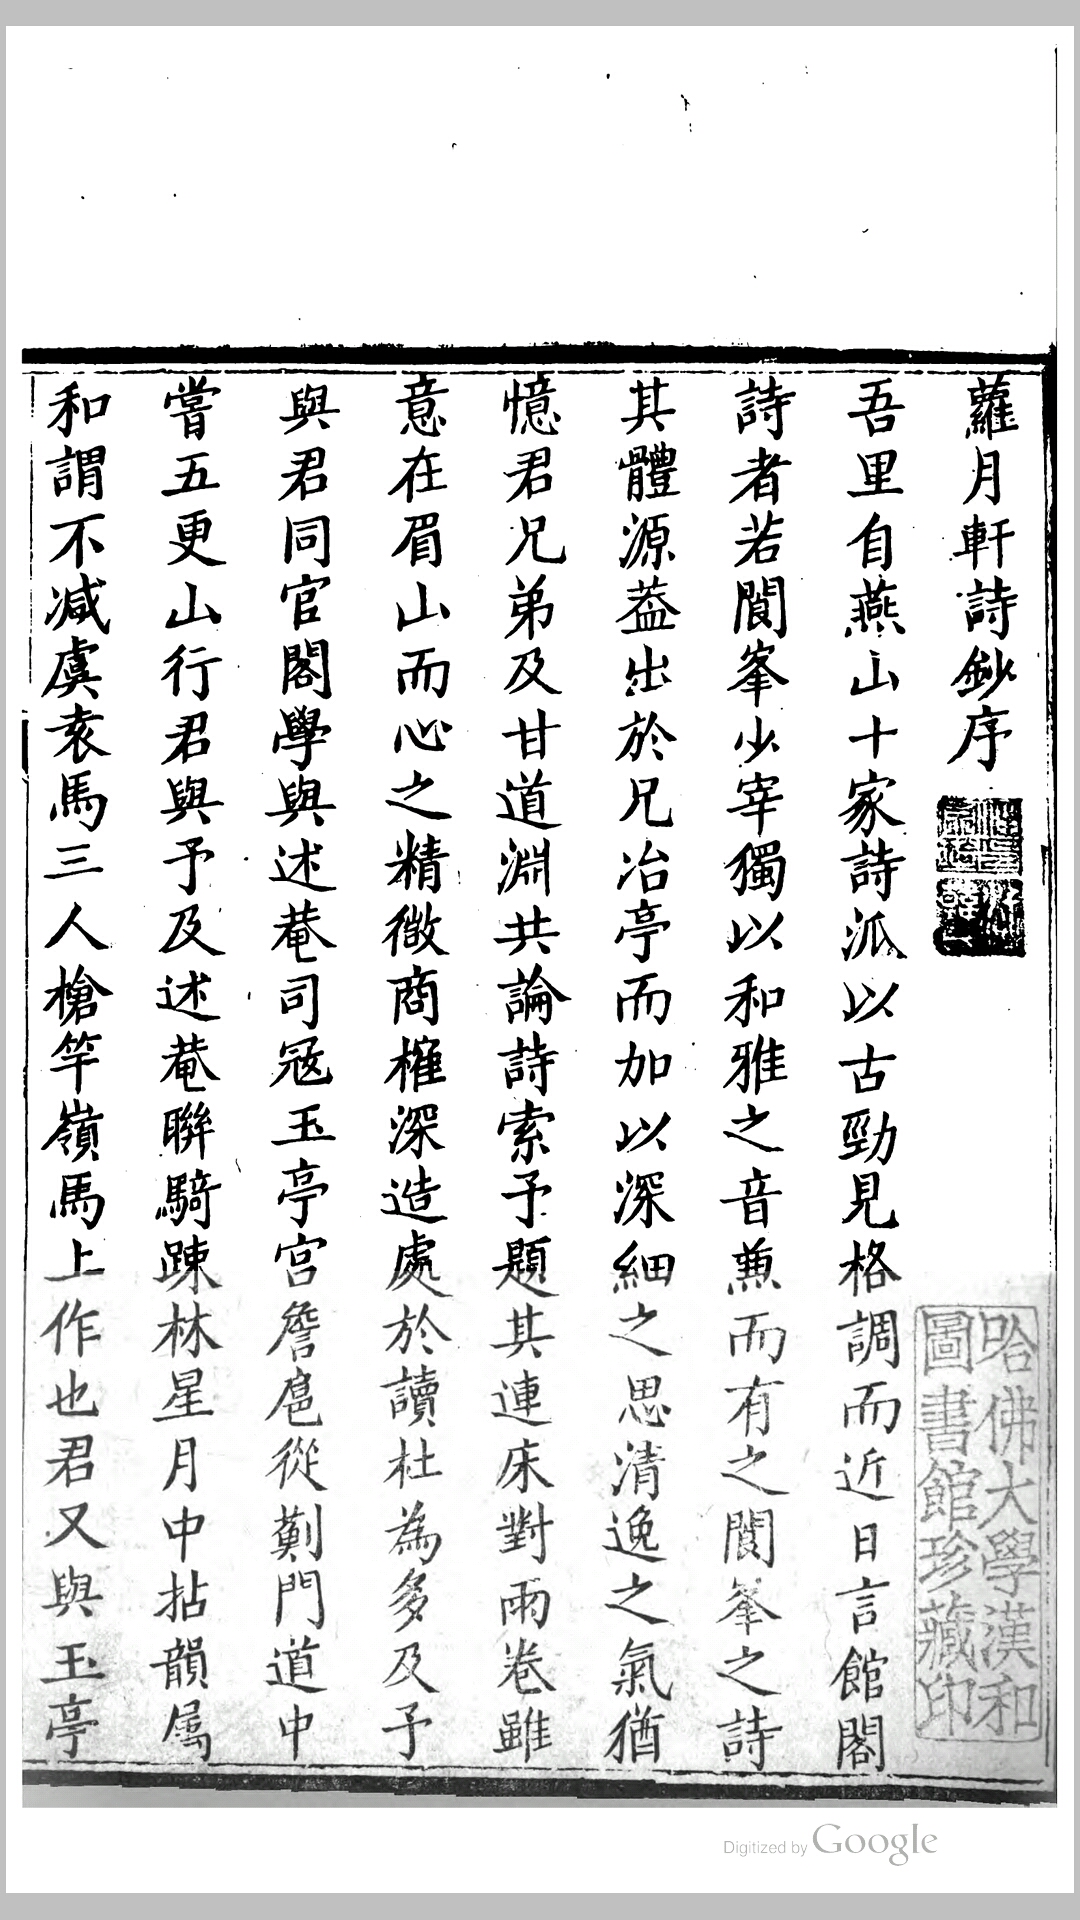 蘿月軒詩鈔序
吾里自燕山十家詩派以古勁見格調而近日言館閣
詩者若閬峯少宰獨以和雅之音兼而有之閬峯之詩
其體源葢出於兄冶亭而加以深細之思清逸之氣猶
憶君兄弟及甘道淵共論詩索予題其連床對雨卷雖
意在眉山而心之精微商榷深造處於讀杜為多及予
與君同官閣學與述菴司冦玉亭宮詹扈從薊門道中
嘗五更山行君與予及述菴聯騎踈林星月中拈韻属
和謂不减虞袁馬三人槍竿嶺馬上作也君又與玉亭
哈佛大學漢和
圖書館珍藏印
Digitized by Google